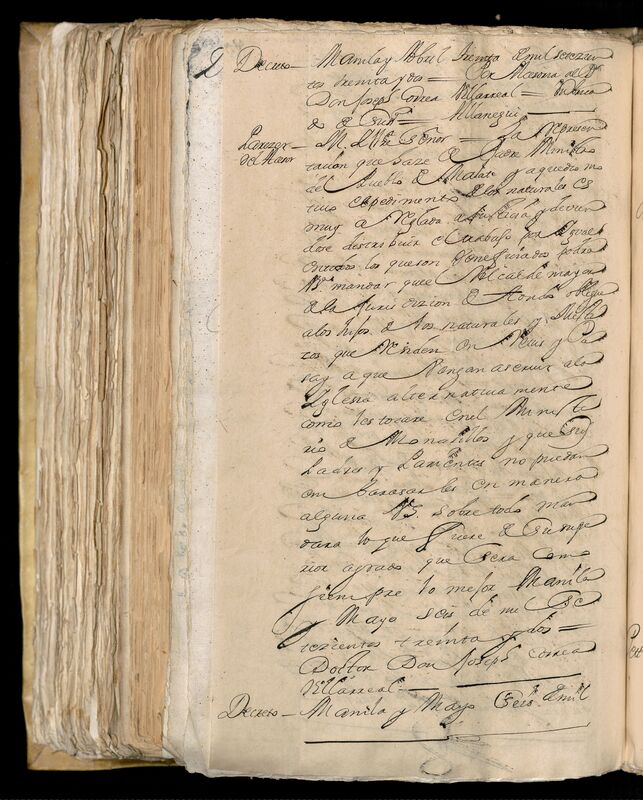 Decreto — Manila y Abril treinta de mil setezien
tos treinta y dos = Por Asesoria al Dor
Don Joseph Correa Villarreal =
= Villanegui
Parezer — M. Ille Señor = La represen
del Asesor tacion que haze el Padre Ministro
del Pueblo de Malate y aquedio mo
tivo el pedimento de los naturales es
muy a reglada a Justicia y devien
dose destribuir el trabajo por Igual
entodos los que son beneficiados podra
VS. mandar que el Alcalde mayor
de la Jurisdizion de Tondo obligue
alos hijos de los naturales y
zos que residen en y Pa
say a que Vengan aservir ala
Yglesia alternativamente
como les tocare en el Ministe
rio de Monasillos y que sus
Padres y Parientes no puedan
embarasarles en manera
alguna VS. sobre todo man
dara lo que fuere de su supe
rior agrado que sera como
siempre lo mejor Manila
y Mayo seis de mil Se
tezientos treinta y dos =
Doctor Don Joseph Correa
Villarreal —
Decreto — Manila y Mayo Seis de mil